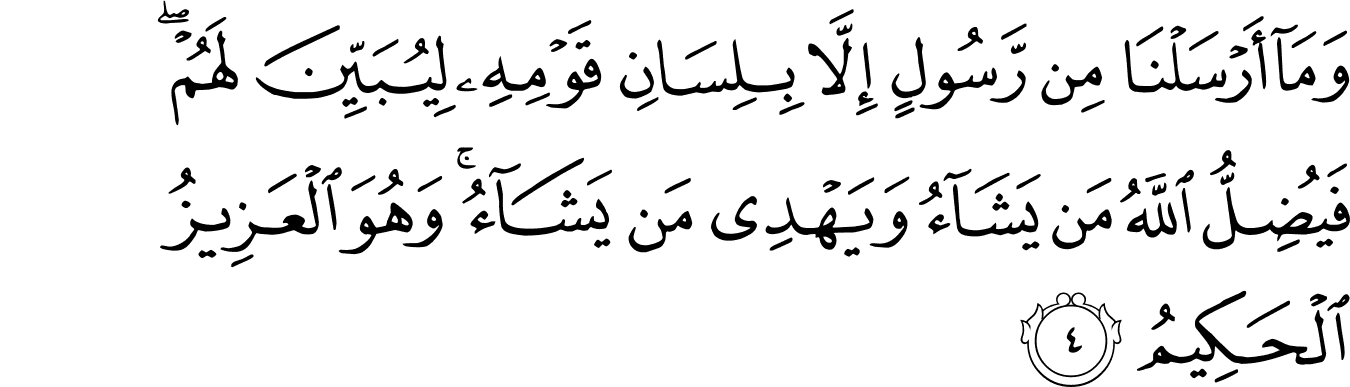 وَمَآ أَرۡسَلۡنَا مِن رَّسُولٍ إِلَّا بِلِسَانِ قَوۡمِهِۦ لِيُبَيِّنَ لَهُمۡۖ
فَيُضِلُّ ٱللَّهُ مَن يَشَآءُ وَيَهۡدِى مَن يَشَآءُۚ وَهُوَ ٱلۡعَزِيزُ
ٱلۡحَكِيمُ ٤